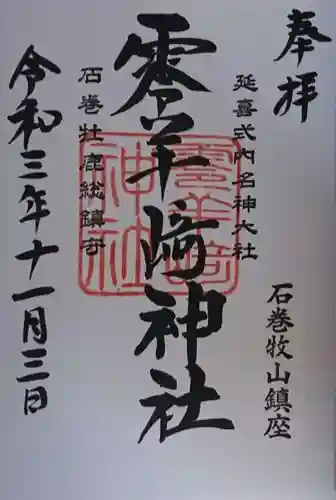 奉拝
石巻牧山鎮座
延喜式内名神大社
零羊崎神社
石巻牡鹿総鎮守
令和三年十一月三日
零羊崎
神社